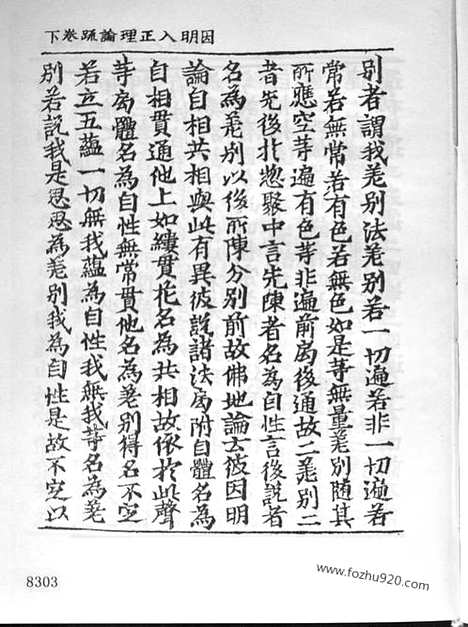 因明入正理論疏卷下
別者謂我差別法差別若一切遍若非一切遍若
常若無常若有色若無色如是等無量差別隨其
所應空等遍有色等非遍前局後通故二差別二
者先後於惣聚中言先陳者名為自性言後說者
名為差別以後所陳分別前故佛地論云彼因明
論自相共相與此有異彼說諸法局附自體名為
自相貫通他上如縷貫花名為共相故依於此聲
等局體名為自性無常貫他名為差別得名不定
若立五蘊一切無我蘊為自性我無我等名為差
別若說我是思思為差別我為自性是故不定以
8303
www.fozhu920.com